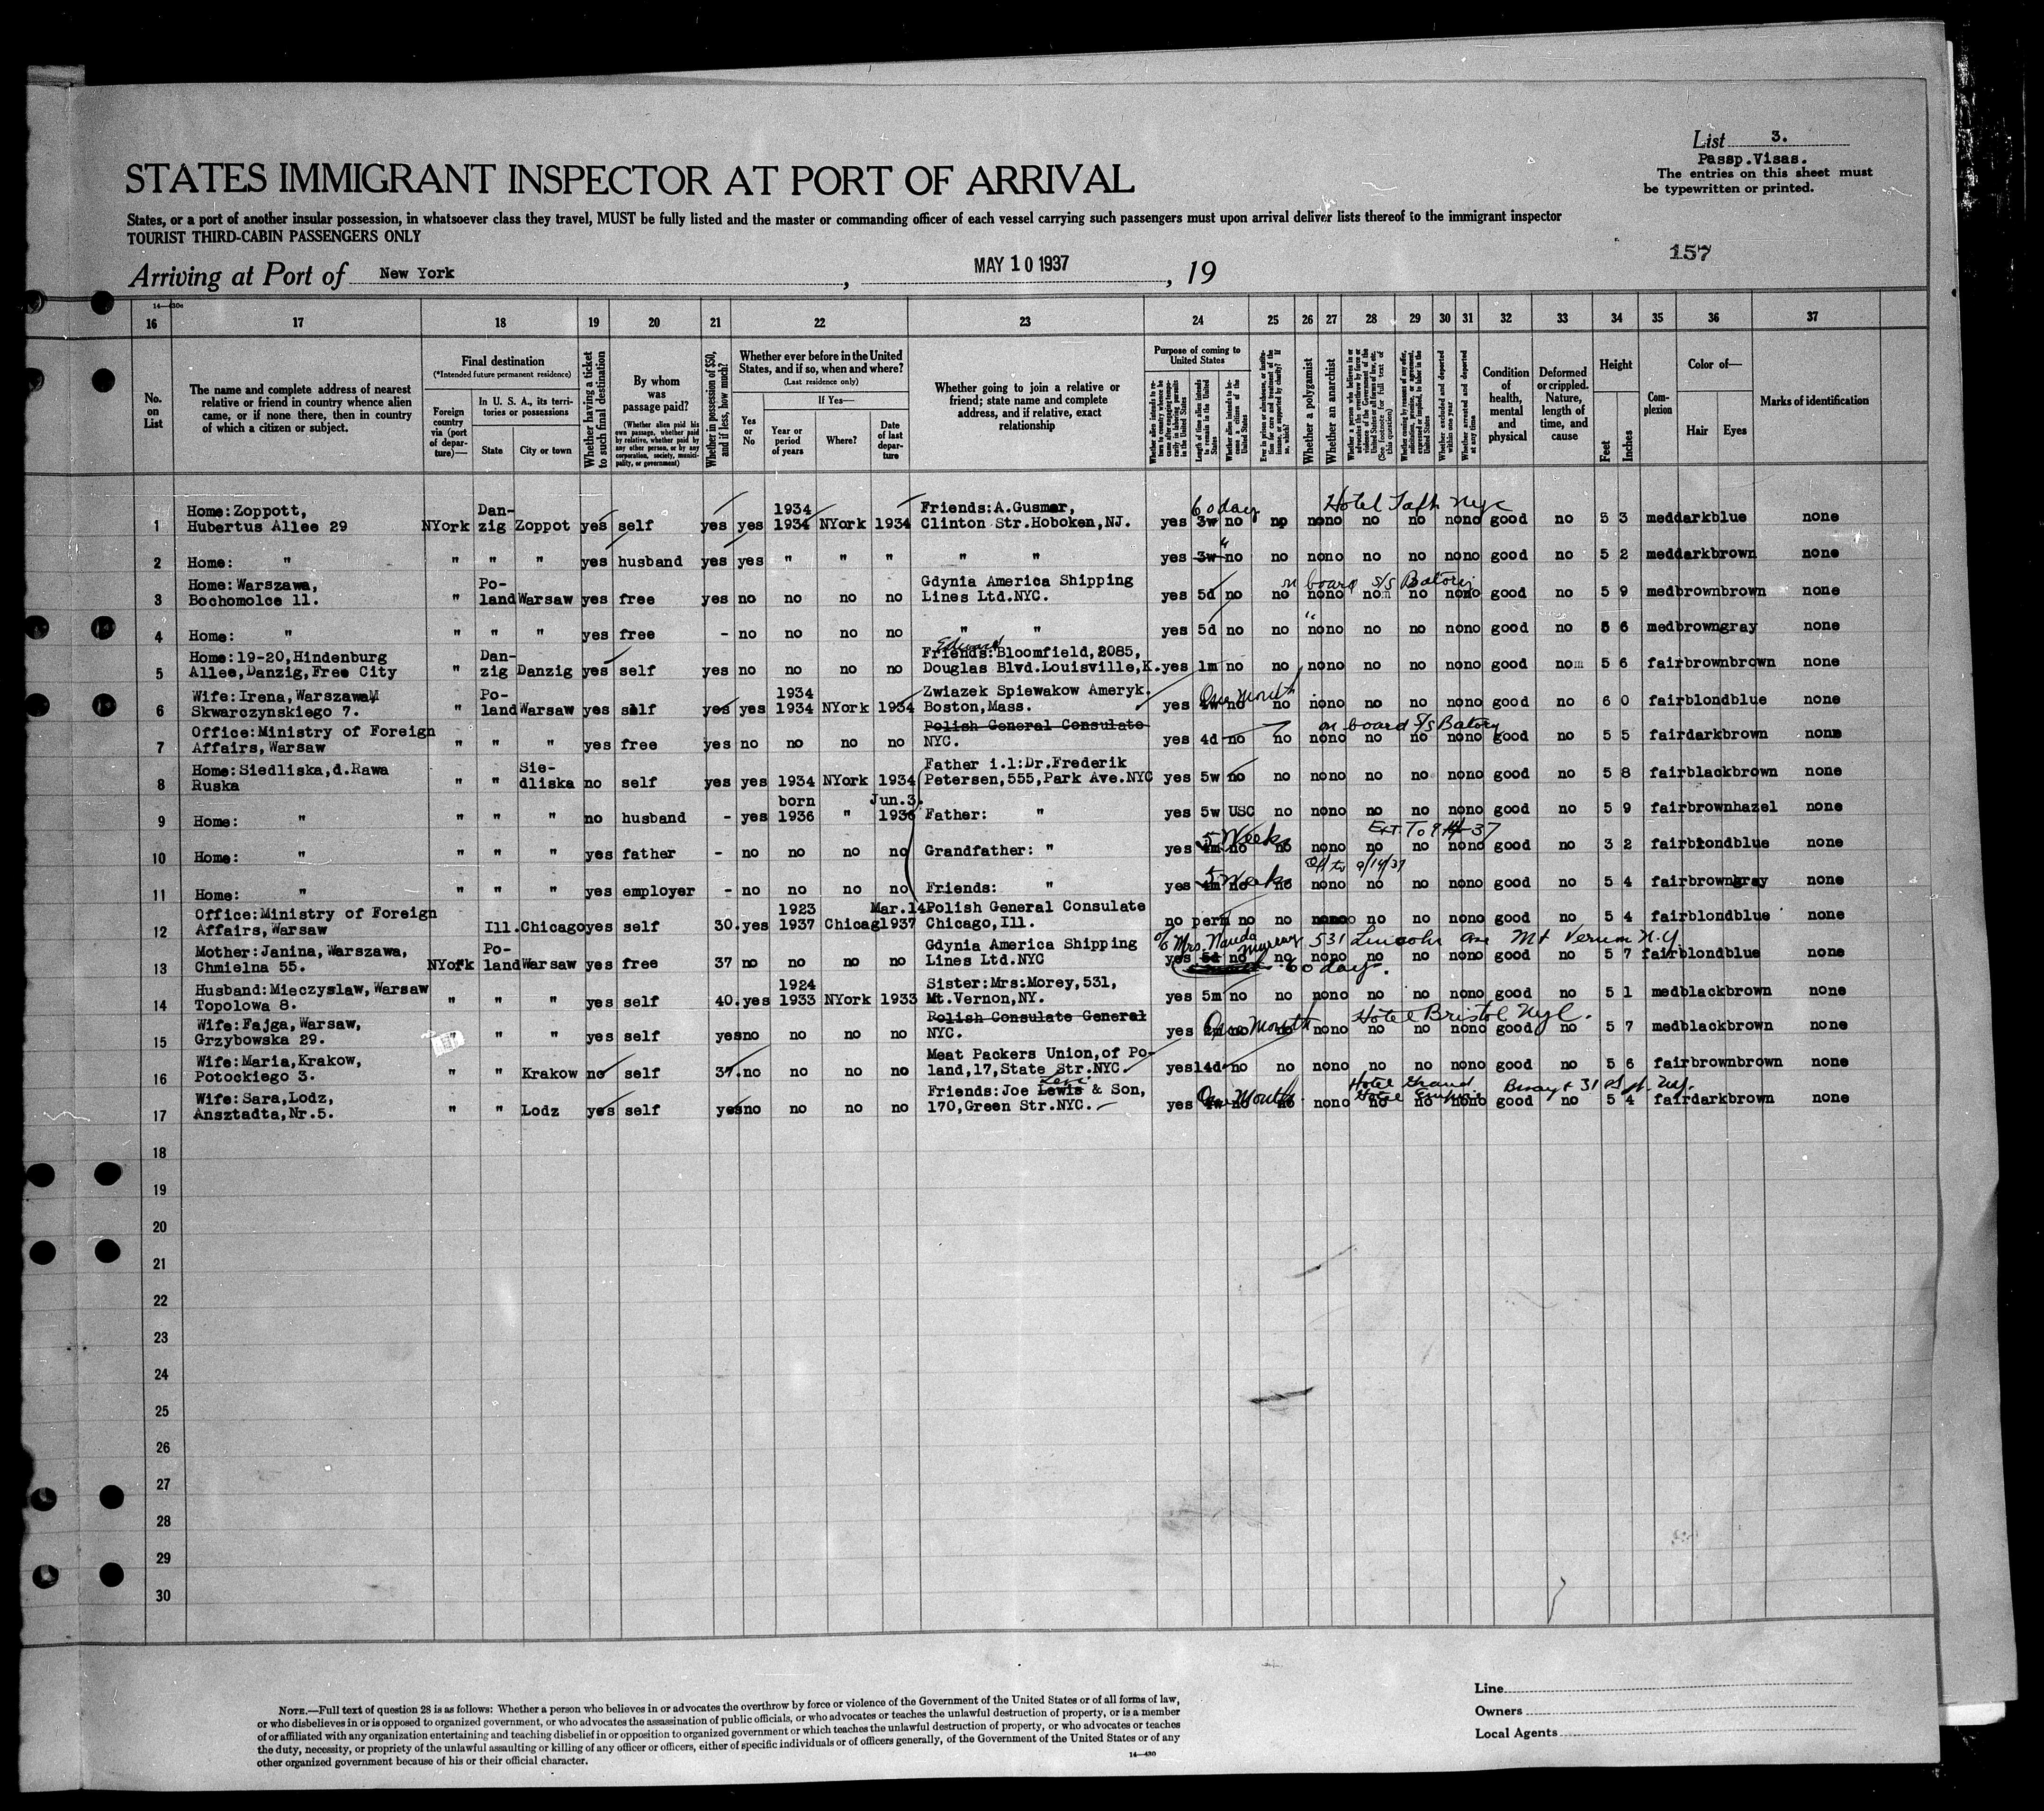 List 3.
Passp.Visas.
The entries on this sheet must
be typewritten or printed.
STATES IMMIGRANT INSPECTOR AT PORT OF ARRIVAL
States, or a port of another insular possession, in whatsoever class they travel, MUST be fully listed and the master or commanding officer of each vessel carrying such passengers must upon arrival deliver lists thereof to the immigrant inspector
TOURIST THIRD-CABIN PASSENGERS ONLY
157
Arriving at Port of New York, MAY 10 1937, 19
16 17 18 19 20 21 22 23 24 25 26 27 28 29 30 31 32 33 34 35 36 37
No. on List
The name and complete address of nearest relative or friend in country whence alien came, or if none there, then in country of which a citizen or subject.
Final destination
(*Intended future permanent residence)
Foreign country via (port of departure)—
In U. S. A., its territories or possessions
State
City or town
Whether having a ticket to such final destination
By whom was passage paid?
(Whether alien paid his own passage, whether paid by relative, whether paid by any other person, or by any corporation, society, municipality, or government)
Whether in possession of $50, and if less, how much?
Whether ever before in the United States, and if so, when and where?
(Last residence only)
Yes or No
If Yes—
Year or period of years
Where?
Date of last departure
Whether going to join a relative or friend; state name and complete address, and if relative, exact relationship
Purpose of coming to United States
Length of time alien intends to remain in the United States
Whether alien intends to become a citizen of the United States
Whether a polygamist
Whether an anarchist
(See footnote for full text of this question)
Whether excluded and deported within one year
Whether arrested and deported at any time
Condition of health, mental and physical
Deformed or crippled. Nature, length of time, and cause
Height
Feet
Inches
Complexion
Color of—
Hair
Eyes
Marks of identification
1 Home:Zoppott, Hubertus Allee 29 NYork Danzig Zoppot yes self yes yes 1934 1934 NYork 1934 Friends:A.Gusmar, Clinton Str.Hoboken,NJ. yes 3w 60 day no no no no no no no no good no 5 3 med dark blue none Hotel Taft Nyc
2 Home: " " " " yes husband yes yes " " " " " yes 3w " no no no no no no no no good no 5 2 med dark brown none
3 Home:Warszawa, Bochomolce 11. " Poland Warsaw yes free yes no no no no Gdynia America Shipping Lines Ltd.NYC. yes 5d no no no no no no no no good no 5 9 med brown brown none on board S/S Batory
4 Home: " " " " yes free - no no no no " " yes 5d no no no no no no no no good no 5 6 med brown gray none
5 Home:19-20,Hindenburg Allee,Danzig,Free City " Danzig Danzig yes self yes no no no no Friends:Edward Bloomfield,2085, Douglas Blvd.Louisville,K. yes 1m no no no no no no no no good no 5 6 fair brown brown none
6 Wife:Irena,Warszawa Skwarczynskiego 7. " Poland Warsaw yes self yes yes 1934 1934 NYork 1934 Zwiazek Spiewakow Ameryk. Boston,Mass. yes One Month no no no no no no no no good no 6 0 fair blond blue none
7 Office:Ministry of Foreign Affairs,Warsaw " " " yes free yes no no no no Polish General Consulate NYC. yes 4d no no no no no no no no good no 5 5 fair dark brown none on board S/S Batory
8 Home:Siedliska,d.Rawa Ruska " " Siedliska no self yes yes 1934 NYork 1934 Father i.l:Dr.Frederik Petersen,555,Park Ave.NYC yes 5w no no no no no no no no good no 5 8 fair black brown none
9 Home: " " " " no husband - yes born 1936 " Jun.3. 1936 Father: " yes 5w USC no no no no no no no good no 5 9 fair brown hazel none
10 Home: " " " " yes father - no no no no Grandfather: " yes 5 Weeks no no no no no no no no good no 3 2 fair blond blue none
11 Home: " " " " yes employer - no no no no Friends: " yes 5 Weeks no no no no no no no no good no 5 4 fair brown gray none
12 Office:Ministry of Foreign Affairs,Warsaw Ill. Chicago yes self 30. yes 1923 1937 Chicag Mar.14 1937 Polish General Consulate Chicago,Ill. no perm no no no no no no no no good no 5 4 fair blond blue none
13 Mother:Janina,Warszawa, Chmielna 55. NYork Poland Warsaw yes free 37 no no no no Gdynia America Shipping Lines Ltd.NYC yes 5d no no no no no no no no good no 5 7 fair blond blue none 531 Lincoln Ave Mt Vernon N.Y. 60 day.
14 Husband:Mieczyslaw,Warsaw Topolowa 8. " " " yes self 40. yes 1924 1933 NYork 1933 Sister:Mrs:Morey,531, Mt.Vernon,NY. yes 5m no no no no no no no no good no 5 1 med black brown none
15 Wife:Fajga,Warsaw, Grzybowska 29. " " yes self yes no no no no Polish Consulate General NYC. yes One Month no no no no no no no no good no 5 7 med black brown none Hotel Bristol Nyc.
16 Wife:Maria,Krakow, Potockiego 3. " " Krakow no self 37. no no no no Meat Packers Union,of Poland,17,State Str.NYC. yes 14d no no no no no no no no good no 5 6 fair brown brown none
17 Wife:Sara,Lodz, Ansztadta,Nr.5. " " Lodz yes self yes no no no no Friends:Joe Lewis Levi & Son, 170,Green Str.NYC. yes One Month no no no no no no no no good no 5 4 fair dark brown none Hotel Grand
18
19
20
21
22
23
24
25
26
27
28
29
30
NOTE.—Full text of question 28 is as follows: Whether a person who believes in or advocates the overthrow by force or violence of the Government of the United States or of all forms of law,
or who disbelieves in or is opposed to organized government, or who advocates the assassination of public officials, or who advocates or teaches the unlawful destruction of property, or is a member
of or affiliated with any organization entertaining and teaching disbelief in or opposition to organized government or which teaches the unlawful destruction of property, or who advocates or teaches
the duty, necessity, or propriety of the unlawful assaulting or killing of any officer or officers, either of specific individuals or of officers generally, of the Government of the United States or of any
other organized government because of his or their official character.
14—430
Line
Owners
Local Agents